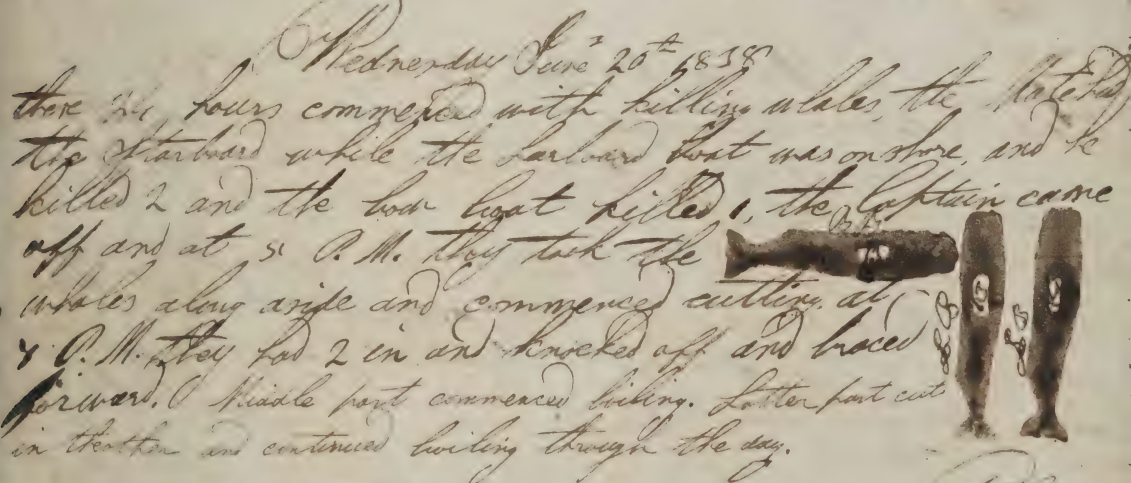 Wednesday June 20th 1838
these 24 hours commenced with killing whales, the Mate had
the Starboard while the Larboard boat was on shore, and he
killed 2 and the bow boat killed 1, the Captain came
off and at P. M. they took the
whales along aside and commenced cutting. at
P. M. they had 2 in and knocked off and braced
forward. Middle part commenced boiling. Latter part cut
in the other and continued boiling through the day.